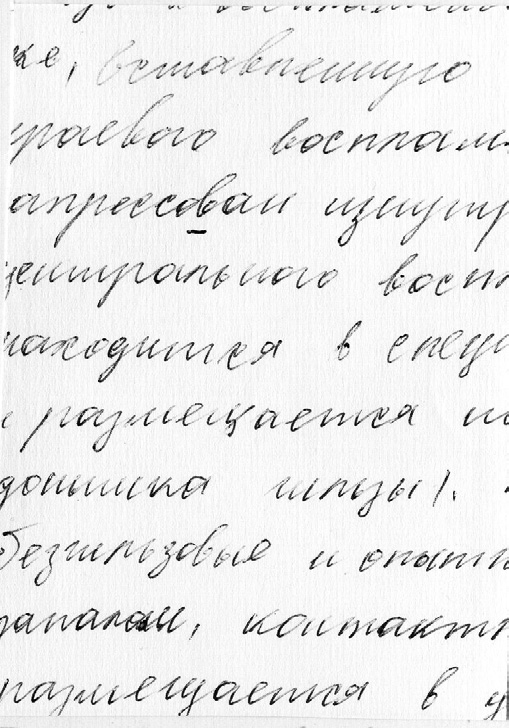 же, вставленную
краевого восплам
апрессован изнутр
центрального восп
находится в специ
размещается
донышка гильзы).
безгильзовые и опытн
контактн
размещается в